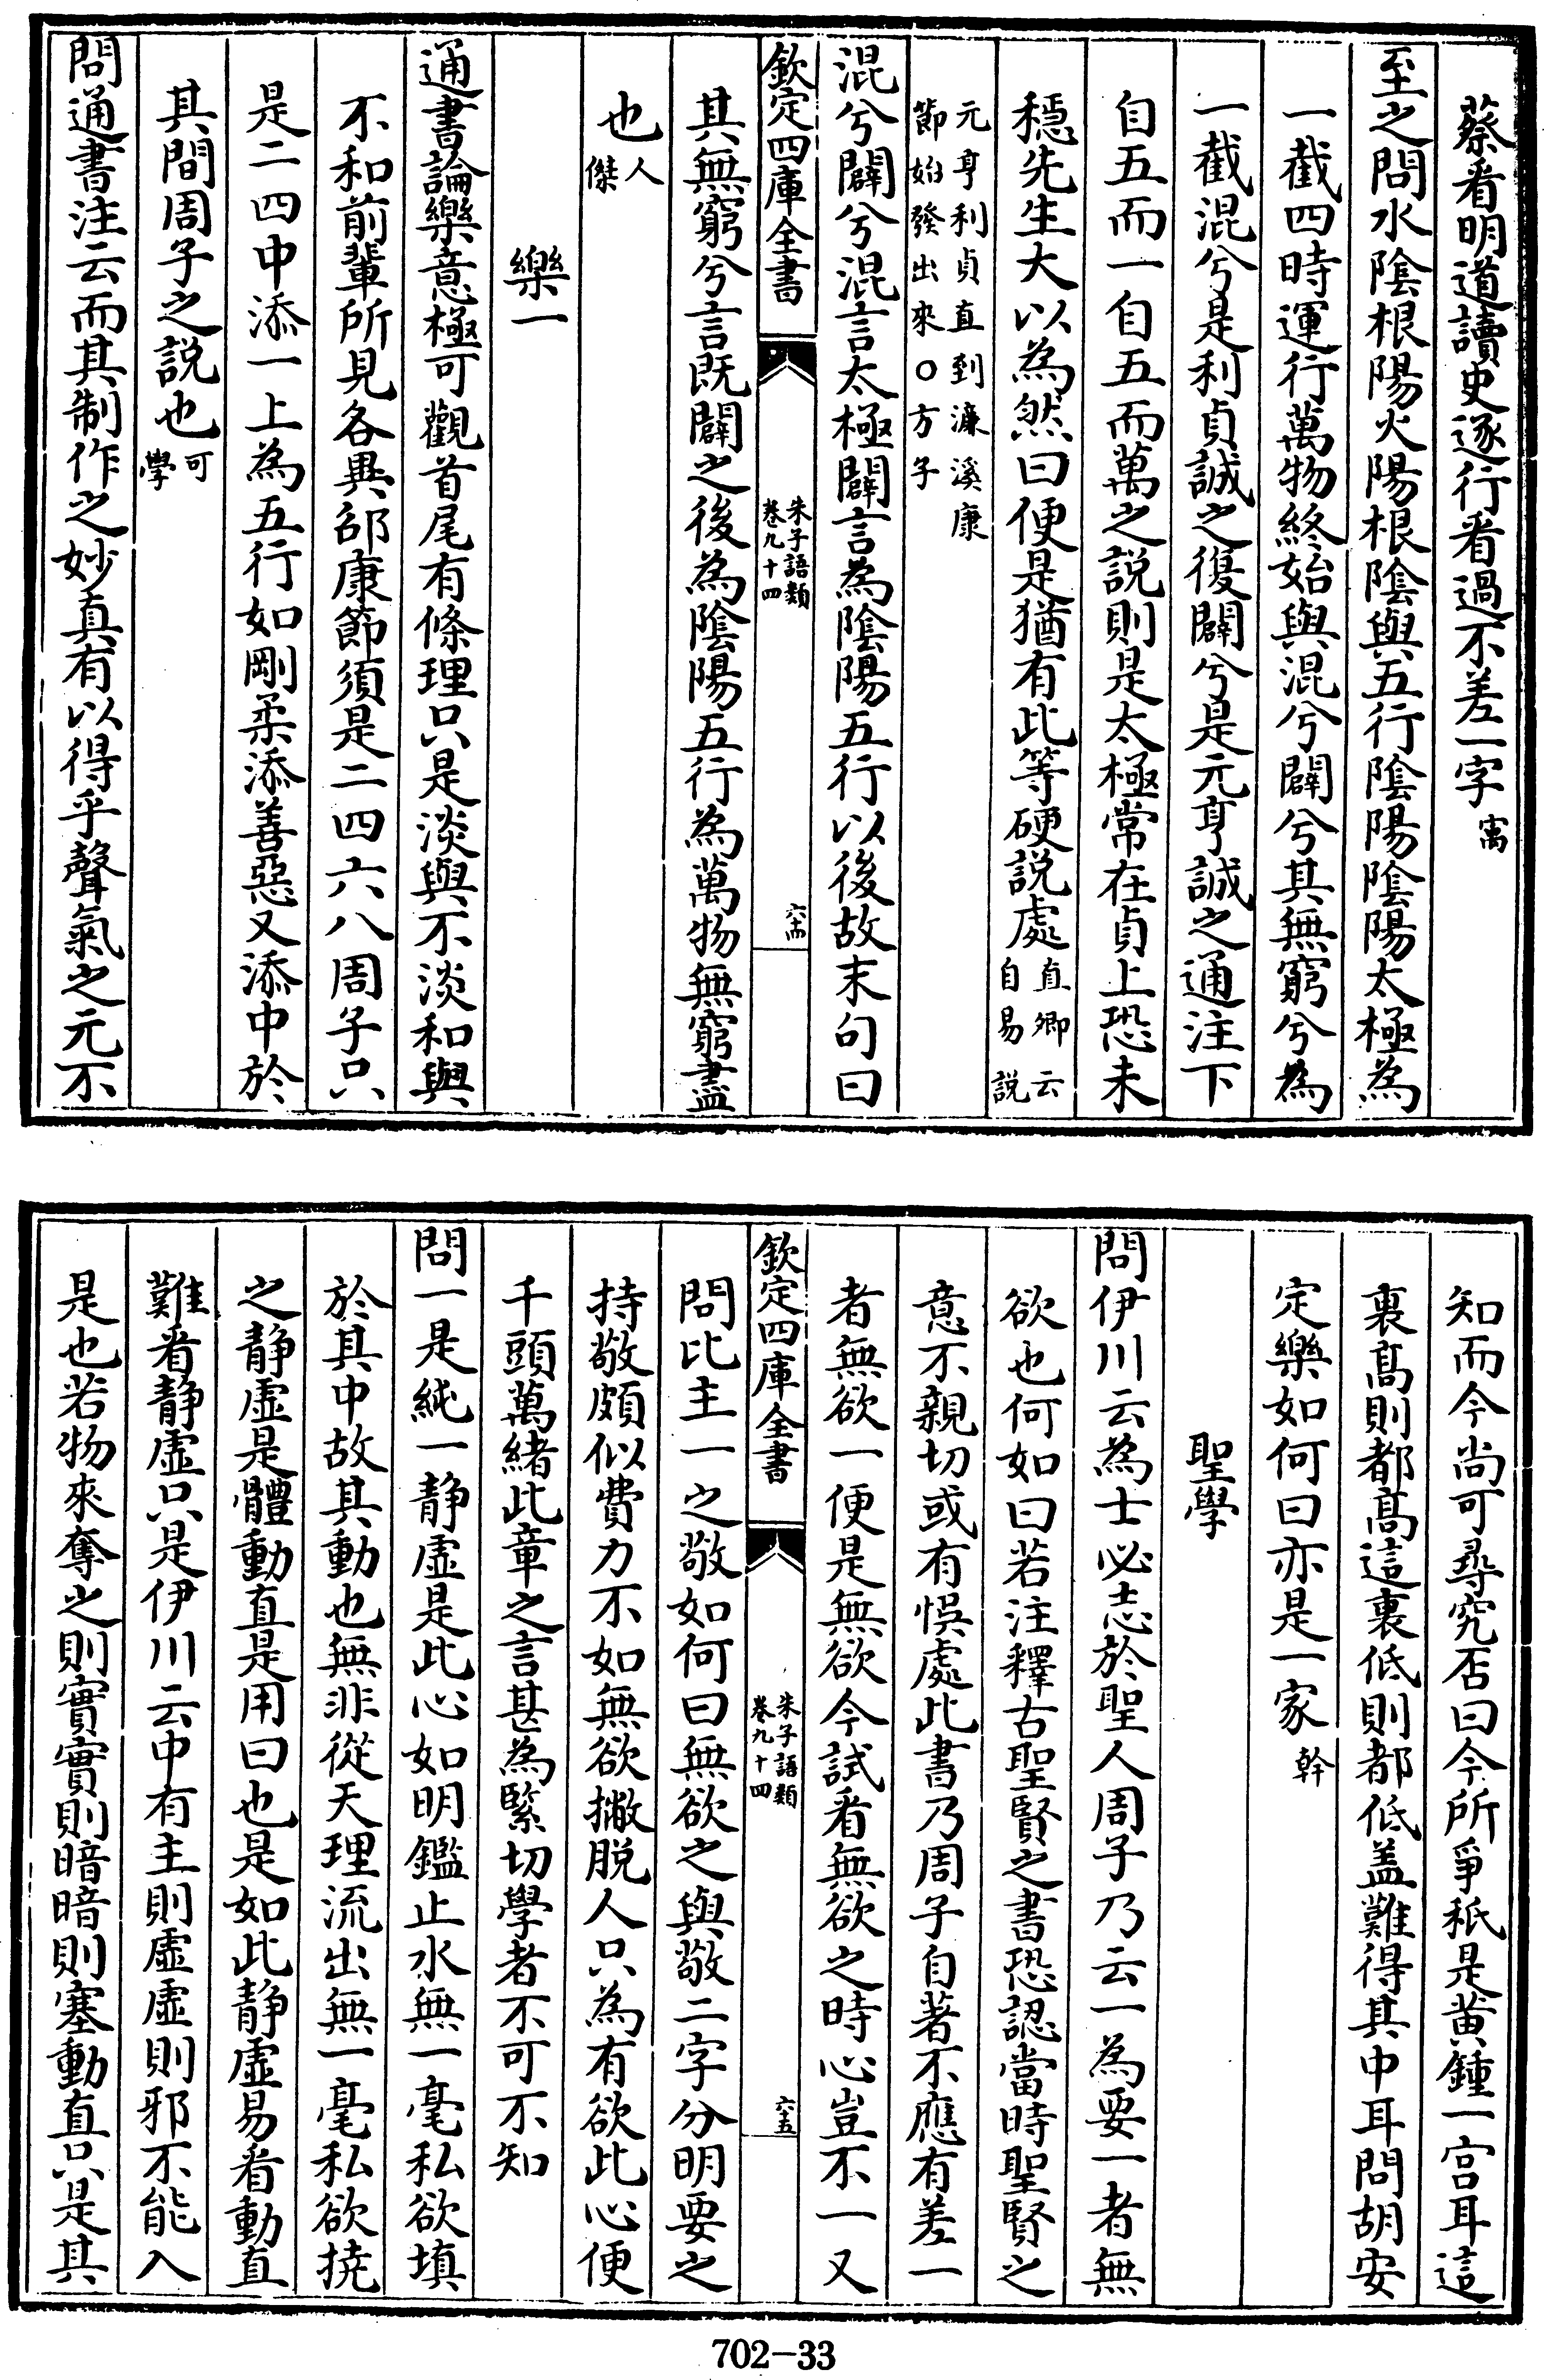 蔡看明道讀史逐行看過不差一字㝢
至之問水陰根陽火陽根陰與五行陰陽陰陽太極為
一截四時運行萬物終始與混兮闢兮其無窮兮為
一截混兮是利貞誠之復闢兮是元亨誠之通注下
自五而一自五而萬之說則是太極常在貞上恐未
穩先生大以為然曰便是猶有此等硬說處直卿云
自易說
元亨利貞直到濂溪康
節始發出來○方子
混兮闢兮混言太極闢言為陰陽五行以後故末句曰
欽定四庫全書
朱子語類
卷九十四
六十四
其無窮兮言既闢之後為陰陽五行為萬物無窮盡
也人
傑
樂一
通書論樂意極可觀首尾有條理只是淡與不淡和與
不和前輩所見各異邵康節須是二四六八周子只
是二四中添一上為五行如剛柔添善惡又添中於
其間周子之說也可
學
問通書注云而其制作之妙真有以得乎聲氣之元不
知而今尚可尋究否曰今所爭秖是黃鍾一宮耳這
裏高則都高這裏低則都低盖難得其中耳問胡安
定樂如何曰亦是一家榦
聖學
問伊川云為士必志於聖人周子乃云一為要一者無
欲也何如曰若注釋古聖賢之書恐認當時聖賢之
意不親切或有悞處此書乃周子自著不應有差一
者無欲一便是無欲今試看無欲之時心豈不一又
欽定四庫全書
朱子語類
卷九十四
六十五
問比主一之敬如何曰無欲之與敬二字分明要之
持敬頗似費力不如無欲撇脫人只為有欲此心便
千頭萬緒此章之言甚為緊切學者不可不知
問一是純一靜虛是此心如明鑑止水無一毫私欲填
於其中故其動也無非從天理流出無一毫私欲撓
之靜虛是體動直是用曰也是如此靜虛易看動直
難看靜虛只是伊川云中有主則虛虛則邪不能入
是也若物來奪之則實實則暗暗則塞動直只是其
702-33